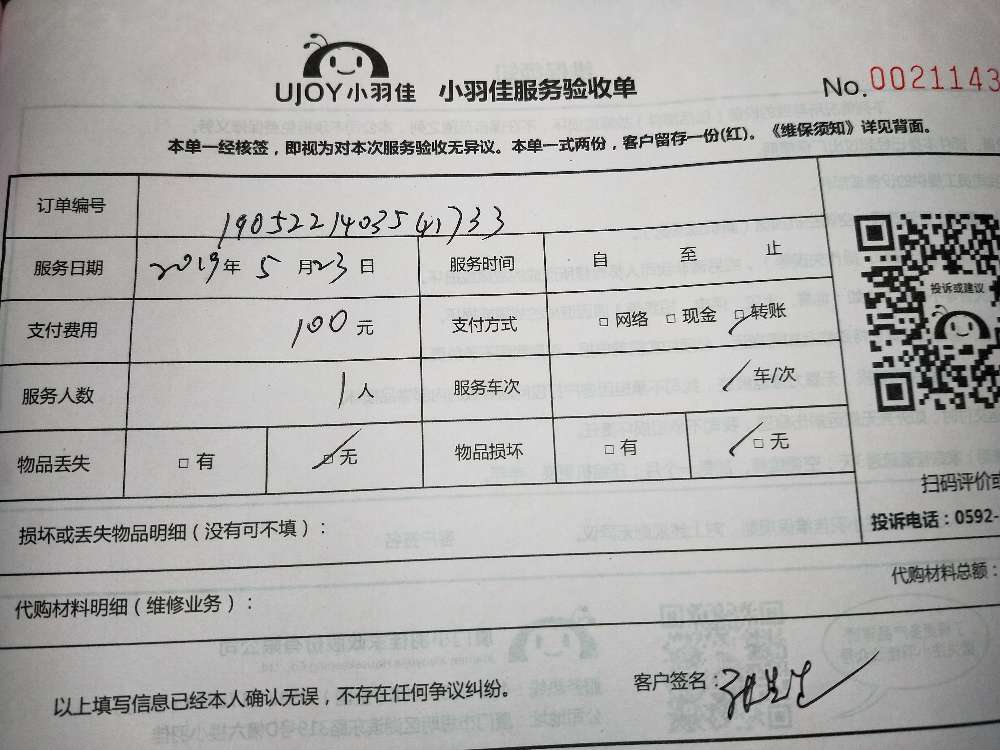 UJOY小羽佳 小羽佳服务验收单 No.0021143
本单一经核签，即视为对本次服务验收无异议。本单一式两份，客户留存一份(红)。《维保须知》详见背面。
订单编号 19052214035541733
服务日期 2019年 5月23日 服务时间 自 至 止
投诉或建议
支付费用 100元 支付方式 □网络 □现金 □转账
服务人数 1人 服务车次 / 车/次
物品丢失 □有 □无 物品损坏 □有 □无
扫码评价或
损坏或丢失物品明细（没有可不填）：
投诉电话：0592-
代购材料明细（维修业务）：
代购材料总额：
以上填写信息已经本人确认无误，不存在任何争议纠纷。 客户签名：